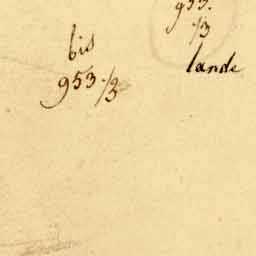 953.
/3
lande
bis
953./3